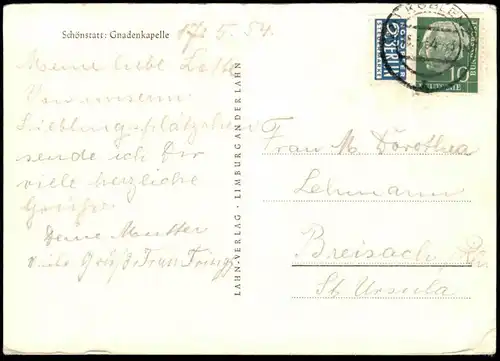 Schönstatt: Gnadenkapelle
17. 5. 54.
Meine liebe
Von unserm
Lieblingsplätzchen
sende ich Dir
viele herzliche
Grüße
Deine Mutter
viele
LAHN-VERLAG - LIMBURG AN DER LAHN
NOTOPFER
2 BERLIN
STEUERMARKE
10
DEUTSCHE BUNDESPOST
Frau M. Dorothea
Lehmann
Breisach
St. Ursula